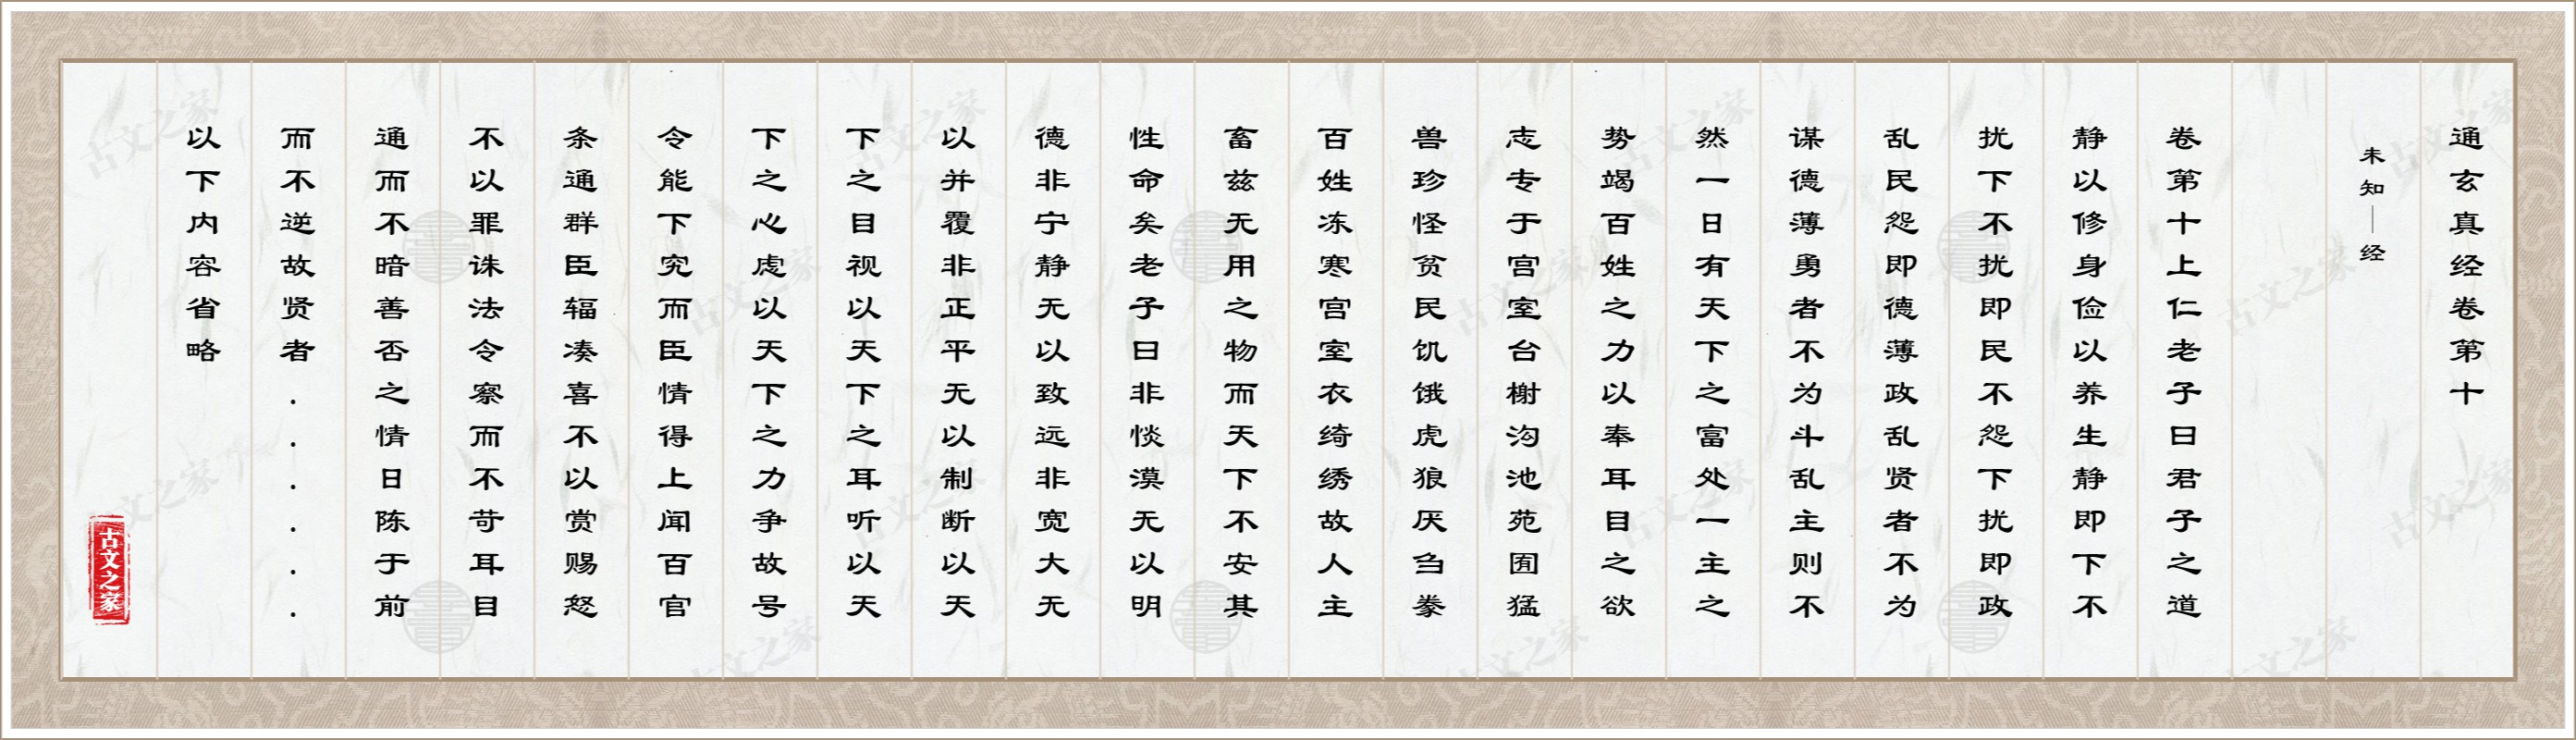 通玄真经卷第十
未知—经
卷第十上仁老子曰君子之道
静以修身俭以养生静即下不
扰下不扰即民不怨下扰即政
乱民怨即德薄政乱贤者不为
谋德薄勇者不为斗乱主则不
然一日有天下之富处一主之
势竭百姓之力以奉耳目之欲
志专于宫室台榭沟池苑囿猛
兽珍怪贫民饥饿虎狼厌刍豢
百姓冻寒宫室衣绮绣故人主
畜兹无用之物而天下不安其
性命矣老子曰非惔漠无以明
德非宁静无以致远非宽大无
以并覆非正平无以制断以天
下之目视以天下之耳听以天
下之心虑以天下之力争故号
令能下究而臣情得上闻百官
条通群臣辐凑喜不以赏赐怒
不以罪诛法令察而不苛耳目
通而不暗善否之情日陈于前
而不逆故贤者......
以下内容省略
古文之家